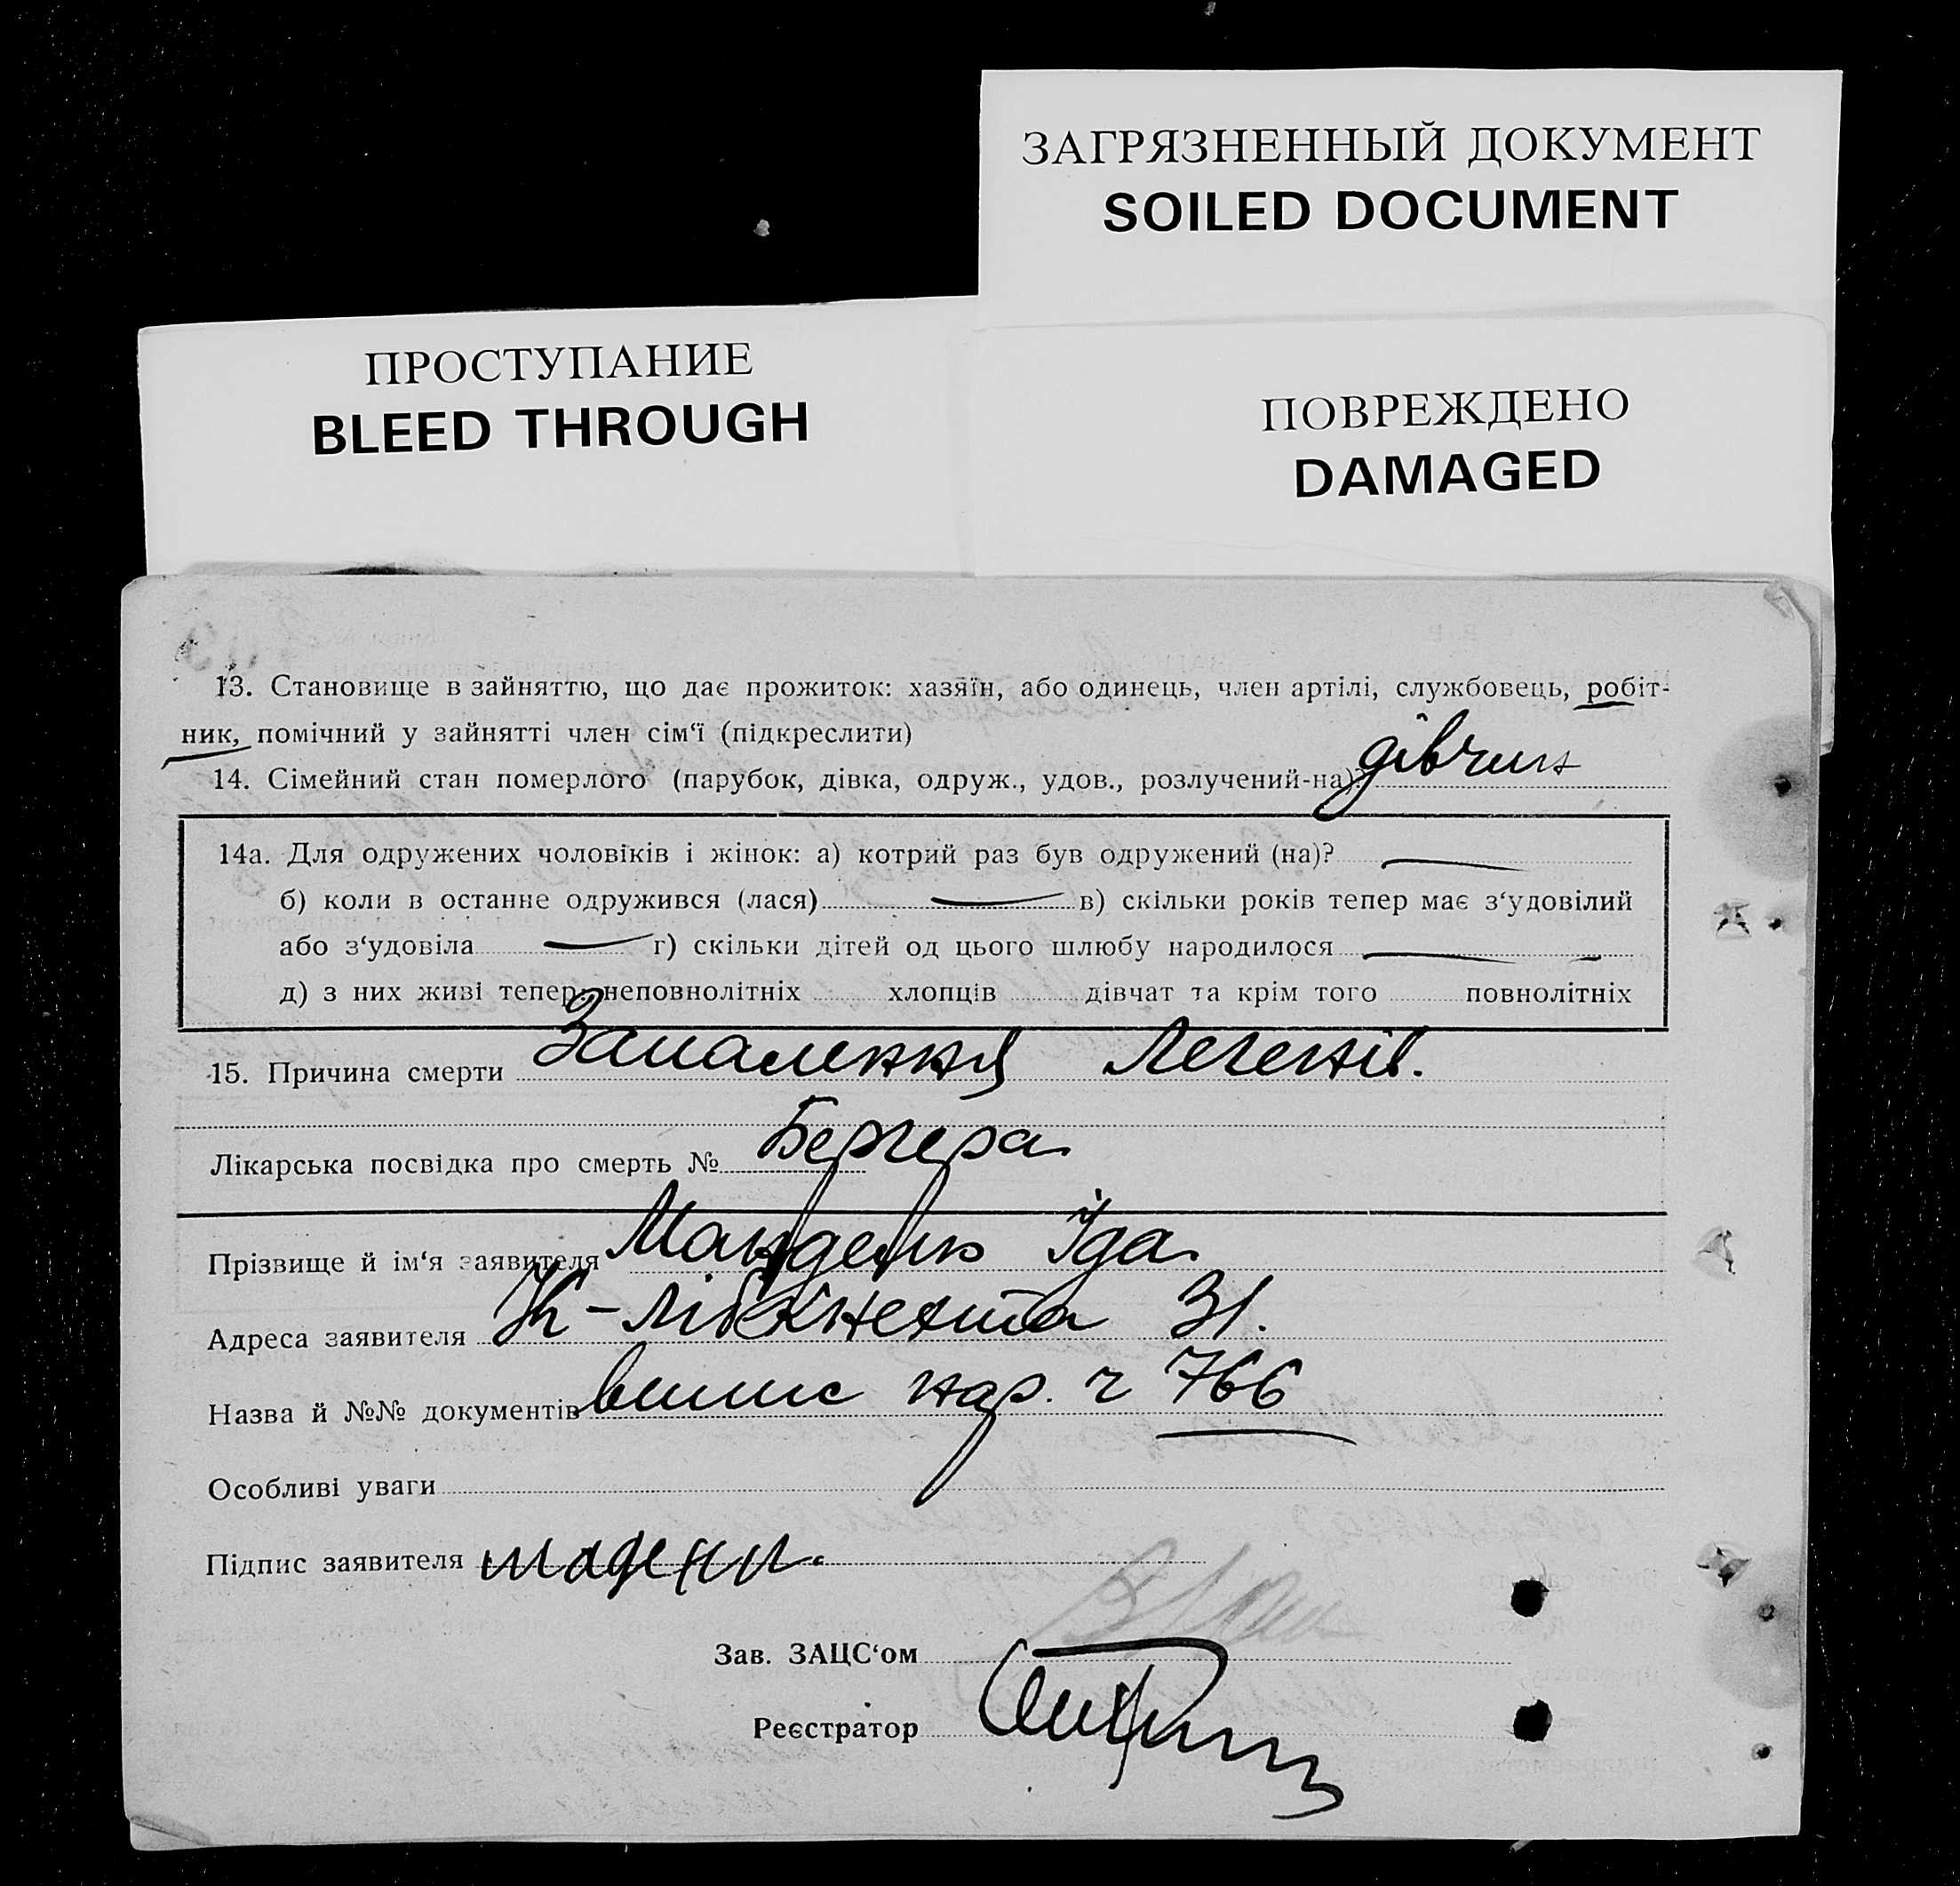 ЗАГРЯЗНЕННЫЙ ДОКУМЕНТ
SOILED DOCUMENT
ПРОСТУПАНИЕ
BLEED THROUGH
ПОВРЕЖДЕНО
DAMAGED
13. Становище в зайняттю, що дає прожиток: хазяїн, або одинець, член артілі, службовець, робіт-
ник, помічний у зайнятті член сім‘ї (підкреслити)
14. Сімейний стан померлого (парубок, дівка, одруж., удов., розлучений-на) дівчина
14а. Для одружених чоловіків і жінок: а) котрий раз був одружений (на)? —
б) коли в останнє одружився (лася) — в) скільки років тепер має з‘удовілий
або з‘удовіла — г) скільки дітей од цього шлюбу народилося —
д) з них живі тепер: неповнолітніх хлопців дівчат та крім того повнолітніх
15. Причина смерти Запалення Легенів.
Лікарська посвідка про смерть № Бергера
Прізвище й ім‘я заявителя Іда
Адреса заявителя К-Лібкнехта 31.
Назва й №№ документів випис нар. ч 766
Особливі уваги
Підпис заявителя
Зав. ЗАЦС‘ом
Реєстратор